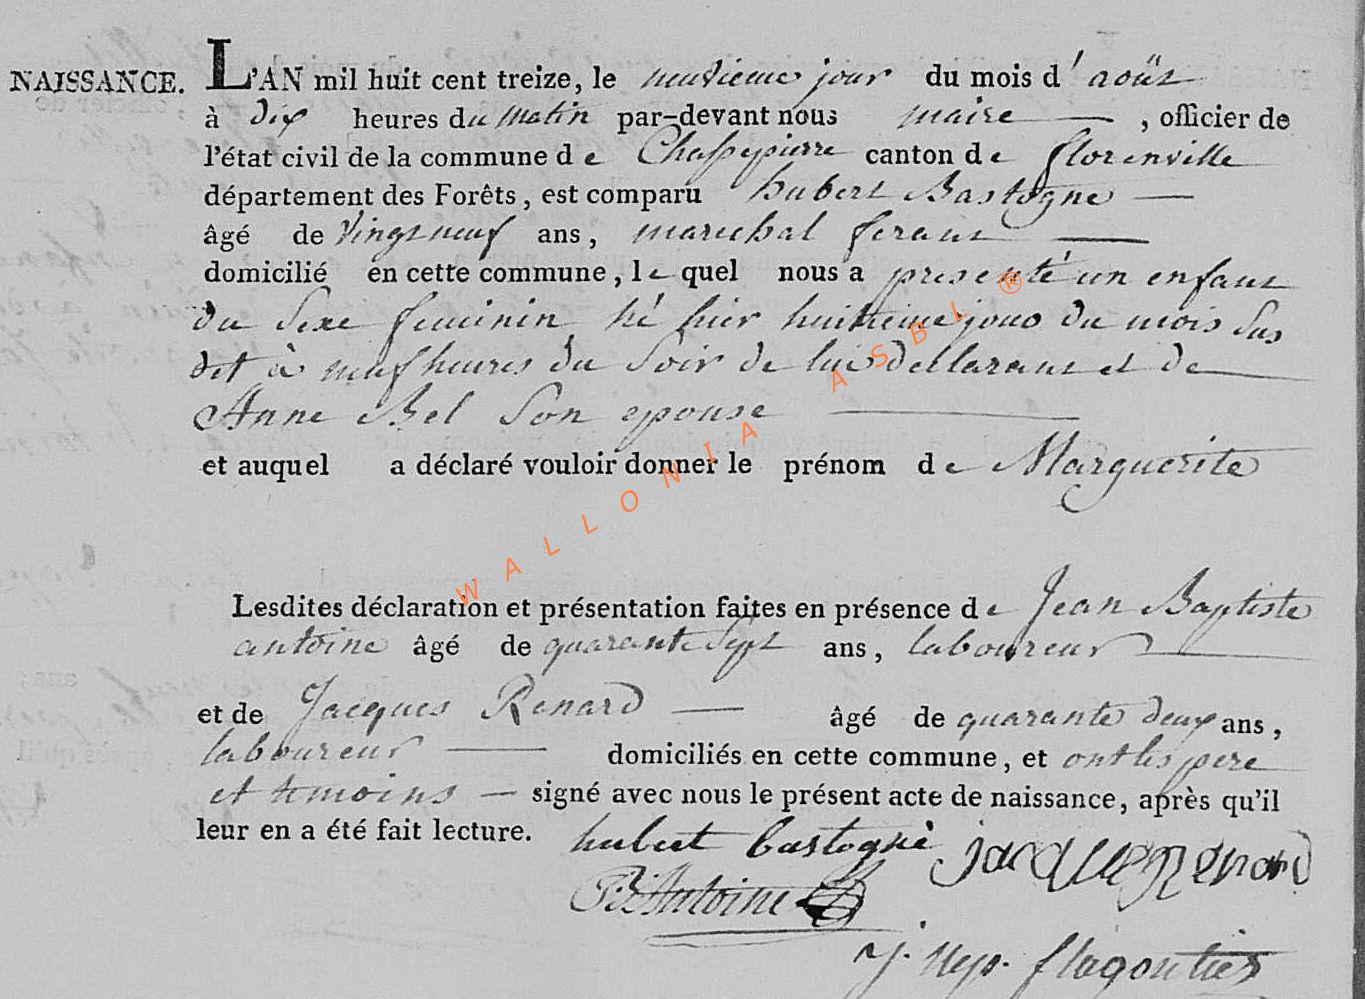 NAISSANCE. L'AN mil huit cent treize, le neuvieme jour du mois d'août
à dix heures du matin par-devant nous maire, officier de
l'état civil de la commune de Chassepierre canton de florenville
département des Forêts, est comparu hubert Bastogne
âgé de vingt neuf ans, marechal ferant
domicilié en cette commune, le quel nous a presenté un enfant
du Sexe feminin né hier huitieme jour du mois Sus
dit à neuf heures du Soir de lui declarant et de
Anne Bel Son epouse
et auquel a déclaré vouloir donner le prénom de Marguerite
Lesdites déclaration et présentation faites en présence de Jean Baptiste
antoine âgé de quarante Sept ans, laboureur
et de Jacques Renard âgé de quarante deux ans,
laboureur domiciliés en cette commune, et ont les pere
et temoins signé avec nous le présent acte de naissance, après qu'il
leur en a été fait lecture. hubert bastogne jacque renard
Antoine
flagontier
WALLONIA ASBL ®